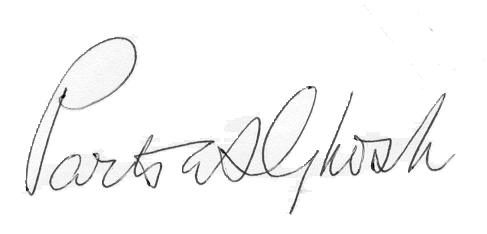 Partha S Ghosh